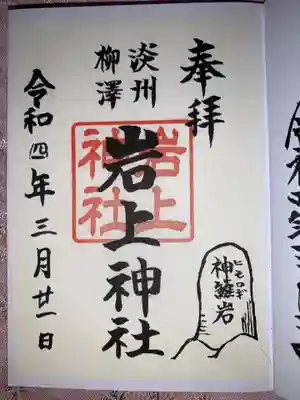 奉拝
淡州
柳澤
岩上神社
岩上
神社
令和四年三月廿一日
ヒモロギ
神籬岩